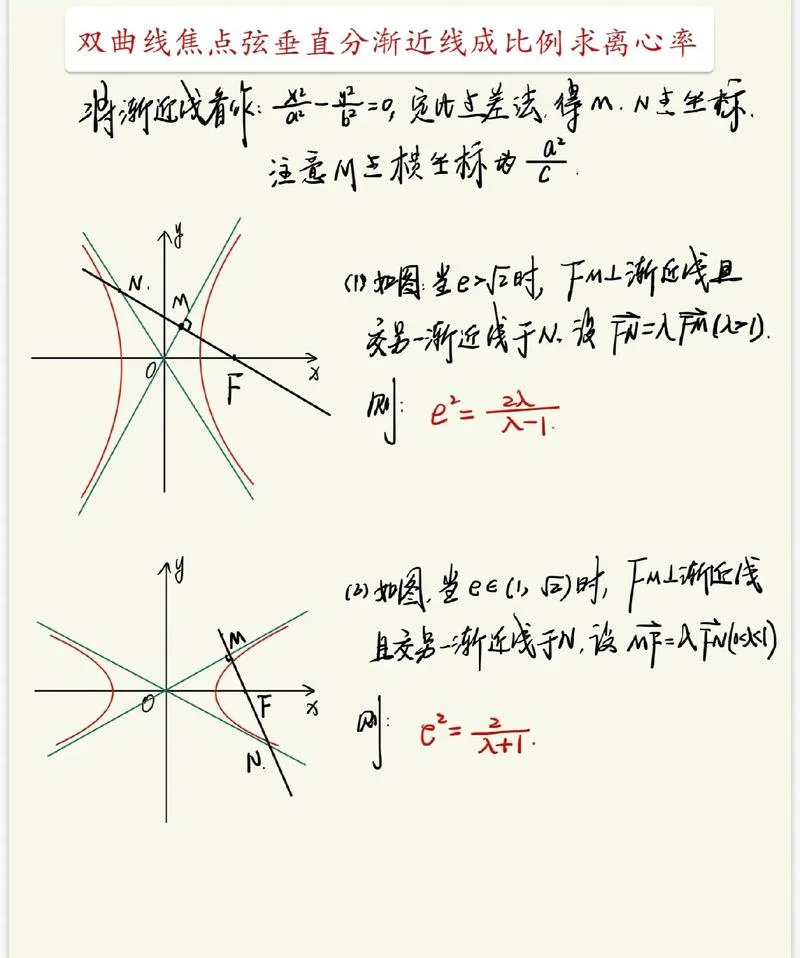 双曲线焦点弦垂直分渐近线成比例求离心率
将渐近线看作: x²/a² - y²/b² = 0, 定比点差法, 得M、N点坐标,
注意M点横坐标为 a²/c.
y
N.
M
O
F
x
(1) 如图: 当e>√2时, FM⊥渐近线且
交另一渐近线于N, 设 FN⃗=λFM⃗(λ>1).
则: e² = 2λ/(λ-1).
y
M
O
F
x
N.
(2) 如图, 当e∈(1, √2)时, FM⊥渐近线
且交另一渐近线于N, 设 MF⃗=λFN⃗(0<λ<1)
则: e² = 2/(λ+1).